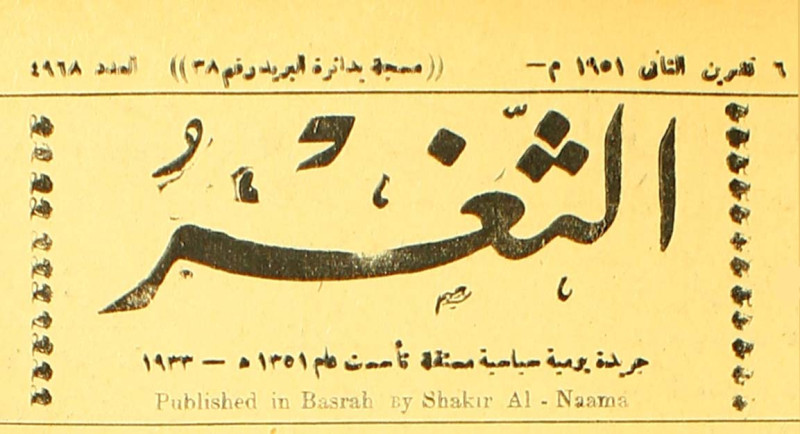 ٦ تشرين الثاني ١٩٥١ م— ((مسجلة بدائرة البريد رقم ٣٨)) العدد ٤٩٦٨
الثَّغْرُ
جريدة يومية سياسية مستقلة تأسست عام ١٣٥١ ه — ١٩٣٣
Published in Basrah By Shakir Al - Naama